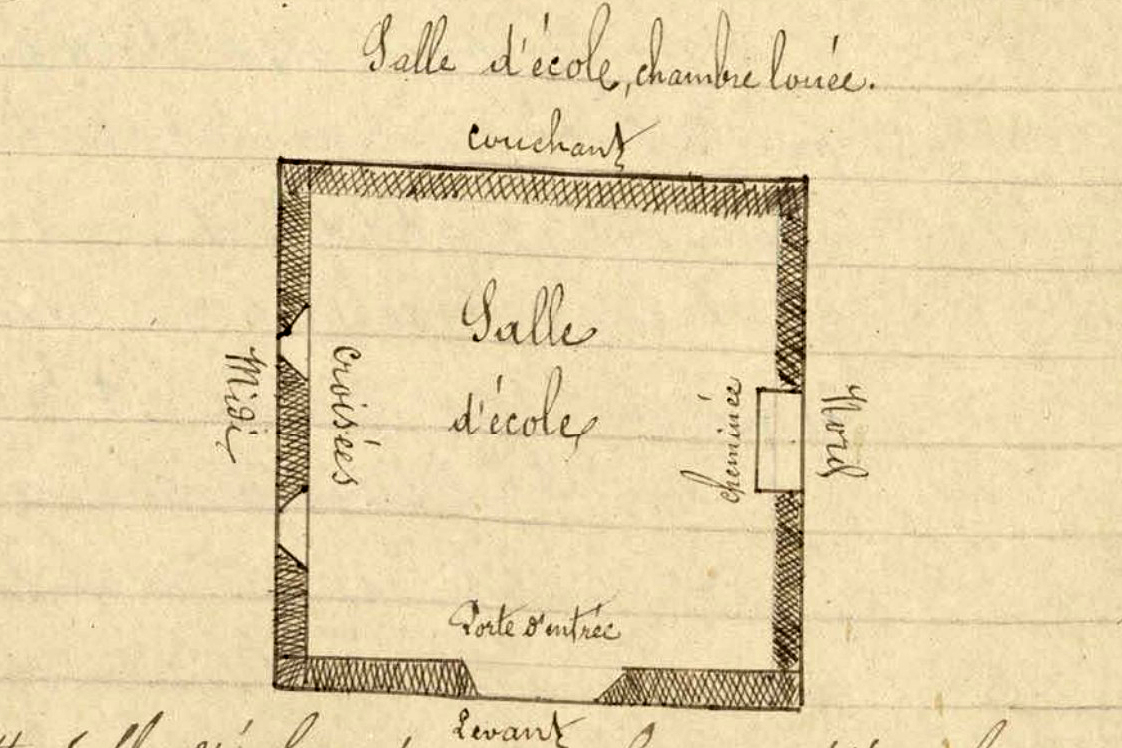 Salle d'école, chambre louée.
couchant
Salle
d'école
Midi
croisées
cheminée
Nord
Porte d'entrée
Levant